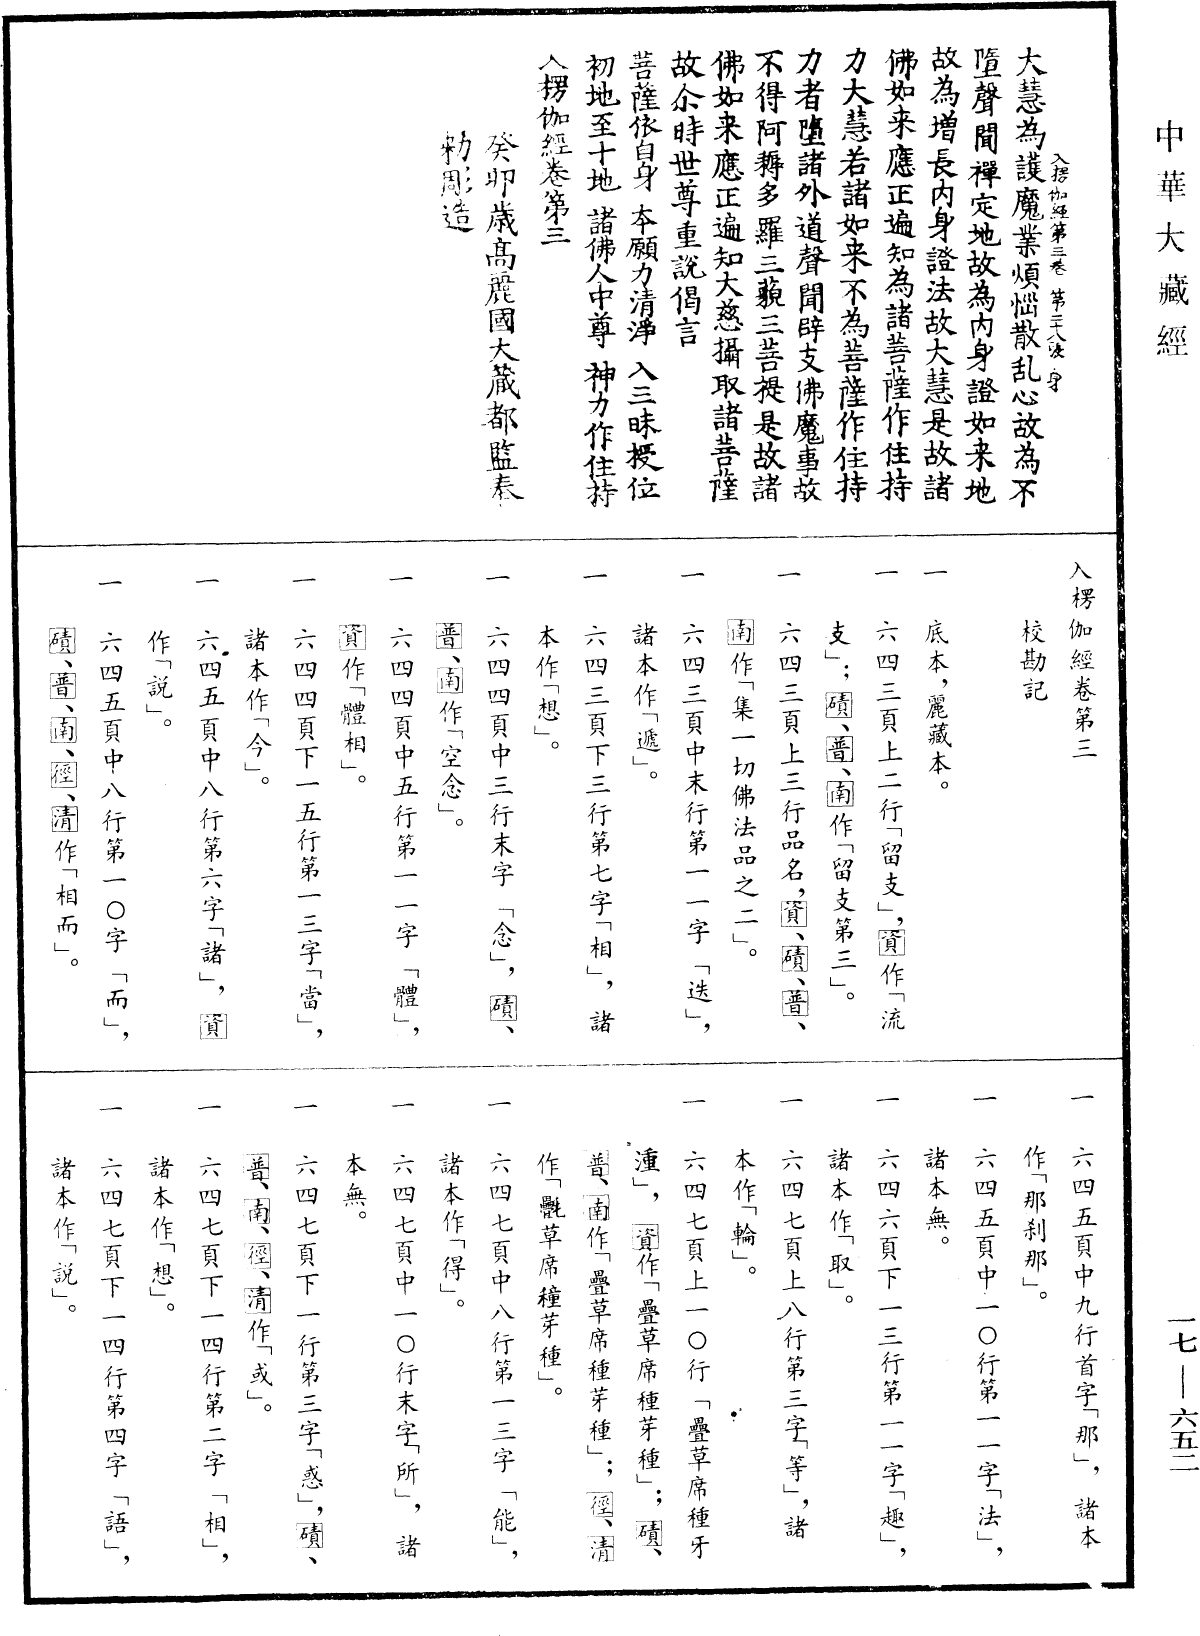 中華大藏經
大慧為護魔業煩惱散乱心故為不
入楞伽經第三卷 第二十八張 身
墮聲聞禪定地故為內身證如来地
故為增長內身證法故大慧是故諸
佛如来應正遍知為諸菩薩作住持
力大慧若諸如来不為菩薩作住持
力者墮諸外道聲聞辟支佛魔事故
不得阿耨多羅三藐三菩提是故諸
佛如来應正遍知大慈攝取諸菩薩
故尒時世尊重說偈言
菩薩依自身 本願力清淨 入三昧授位
初地至十地 諸佛人中尊 神力作住持
入楞伽經卷第三
癸卯歲高麗國大藏都監奉
勑彫造
入楞伽經卷第三
校勘記
一 底本,麗藏本。
一 六四三頁上二行「留支」,資作「流
支」;磧、普、南作「留支第三」。
一 六四三頁上三行品名,資、磧、普、
南作「集一切佛法品之二」。
一 六四三頁中末行第一一字「迭」,
諸本作「遞」。
一 六四三頁下三行第七字「相」,諸
本作「想」。
一 六四四頁中三行末字「念」,磧、
普、南作「空念」。
一 六四四頁中五行第一一字「體」,
資作「體相」。
一 六四四頁下一五行第一三字「當」,
諸本作「今」。
一 六四五頁中八行第六字「諸」,資
作「說」。
一 六四五頁中八行第一〇字「而」,
磧、普、南、徑、清作「相而」。
一 六四五頁中九行首字「那」,諸本
作「那刹那」。
一 六四五頁中一〇行第一一字「法」,
諸本無。
一 六四六頁下一三行第一一字「趣」,
諸本作「取」。
一 六四七頁上八行第三字「等」,諸
本作「輪」。
一 六四七頁上一〇行「疊草席種牙
湩」,資作「疊草席種芽種」;磧、
普、南作「疊草席種芽種」;徑、清
作「氎草席穜芽種」。
一 六四七頁中八行第一三字「能」,
諸本作「得」。
一 六四七頁中一〇行末字「所」,諸
本無。
一 六四七頁下一行第三字「惑」,磧、
普、南、徑、清作「或」。
一 六四七頁下一四行第二字「相」,
諸本作「想」。
一 六四七頁下一四行第四字「語」,
諸本作「説」。
一七—六五二